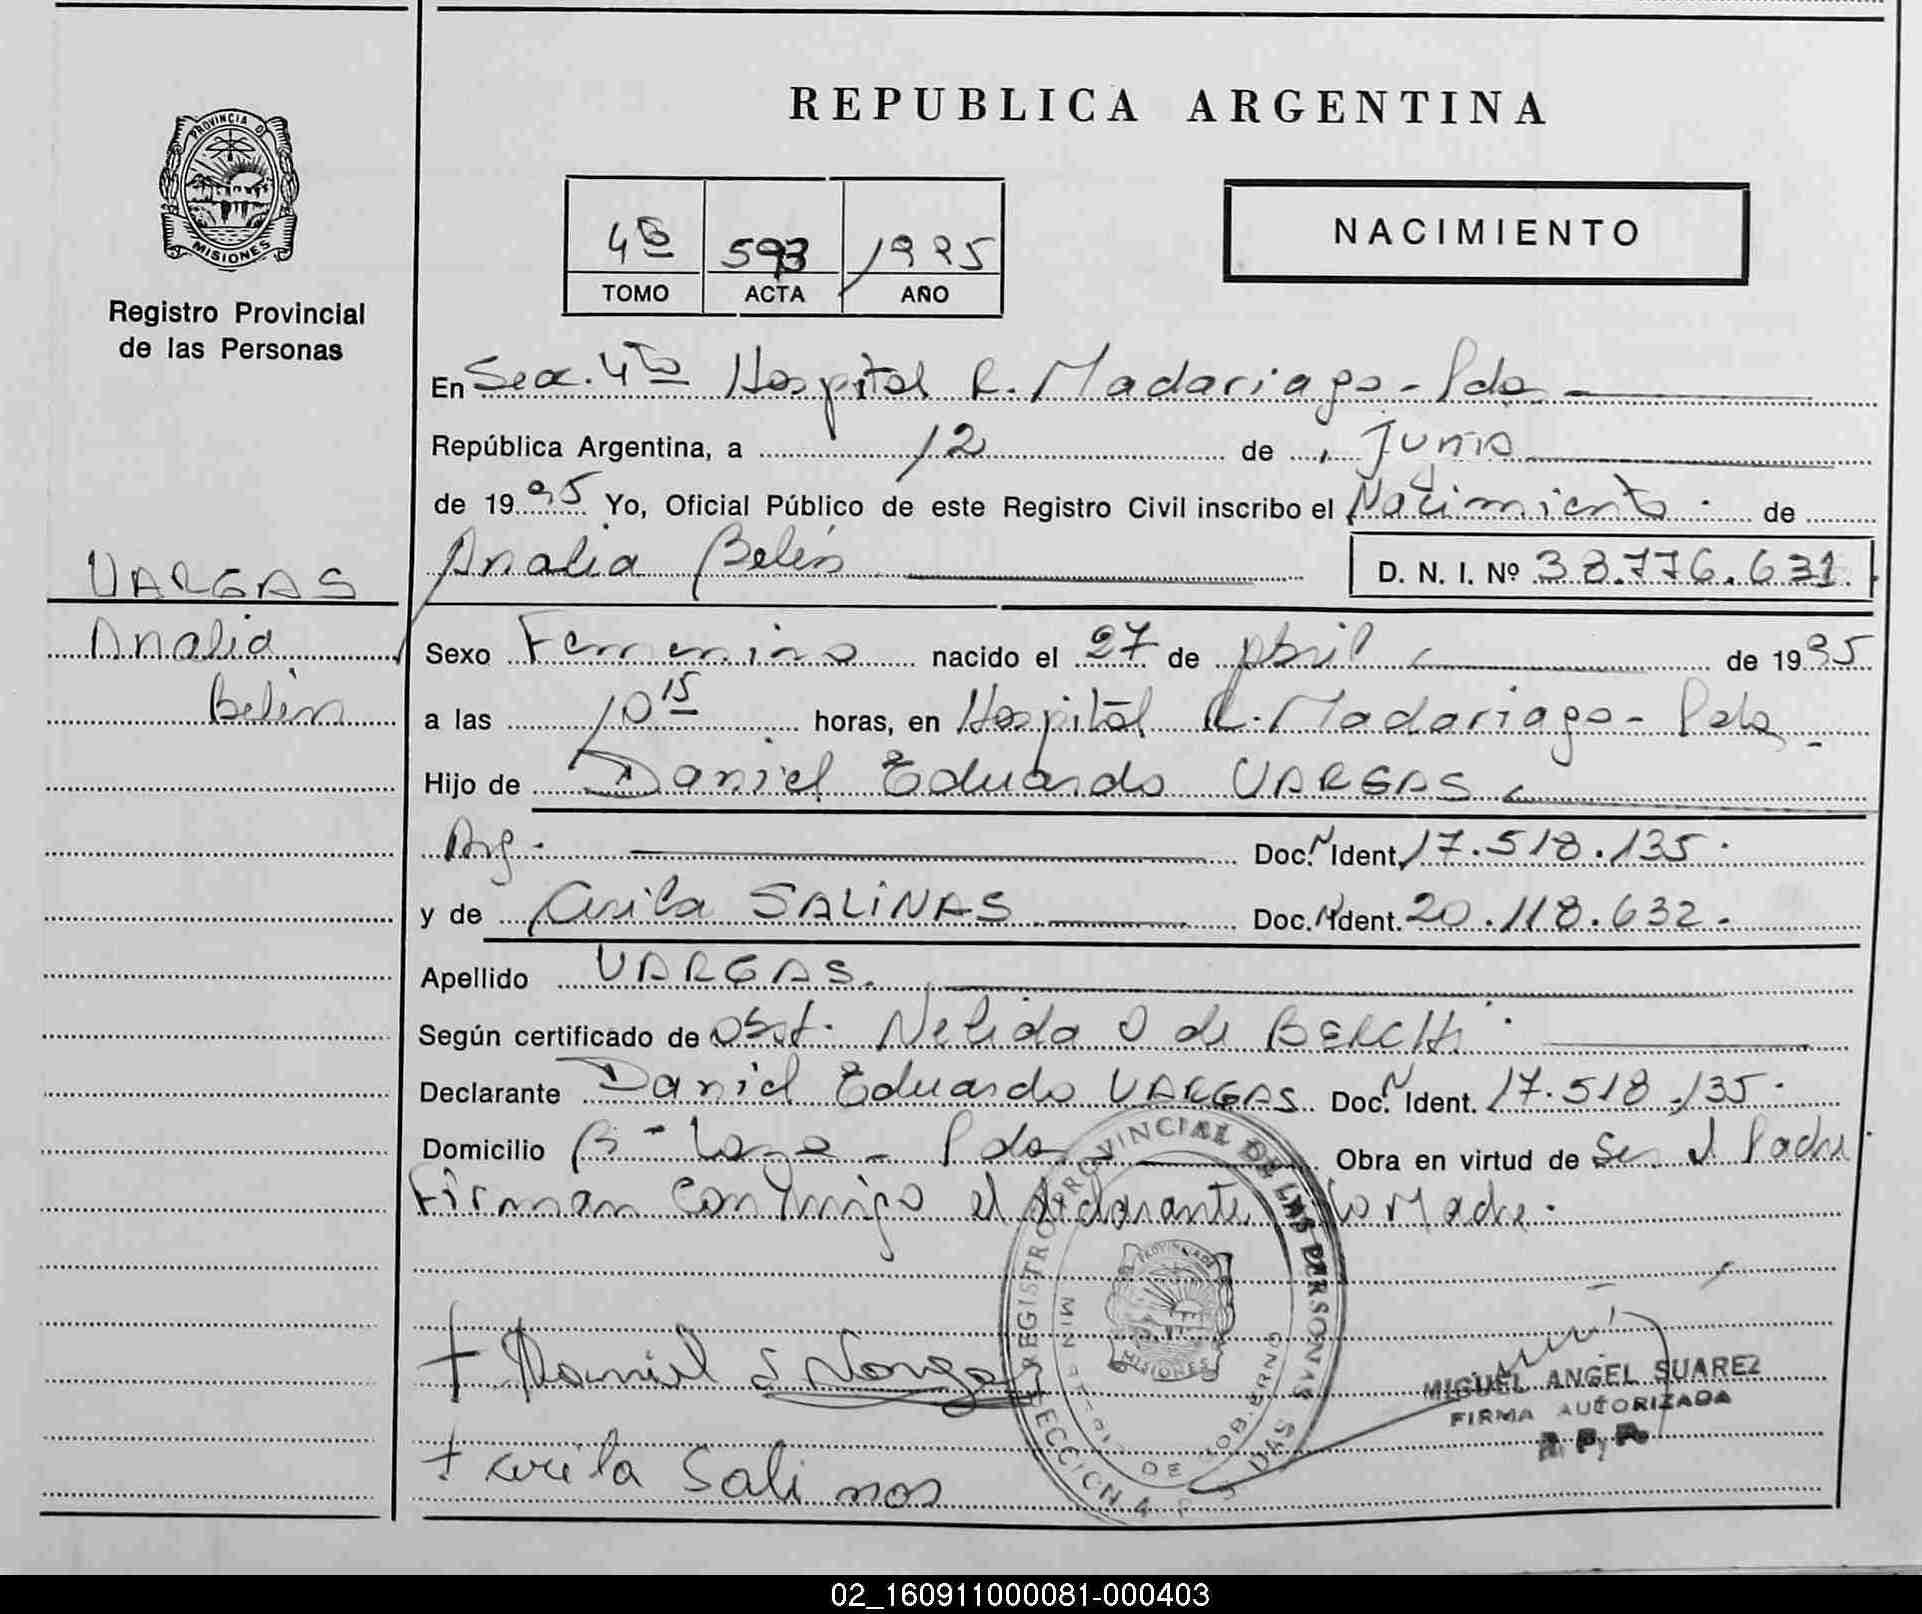 REPUBLICA ARGENTINA
PROVINCIA D
MISIONES
Registro Provincial
de las Personas
4ta 593 1995
TOMO ACTA AÑO
NACIMIENTO
En Secc. 4ta Hospital R. Madariaga - Pdas
República Argentina, a 12 de Junio
de 1995 Yo, Oficial Público de este Registro Civil inscribo el Nacimiento de
Analia Belén D. N. I. Nº 38.776.631
VARGAS
Analia
Belén
Sexo Femenino nacido el 27 de Abril de 1995
a las 10 15 horas, en Hospital R. Madariaga - Pdas
Hijo de Daniel Eduardo VARGAS
Arg. Doc. N Ident. 17.518.135.
y de SALINAS Doc. N Ident. 20.118.632.
Apellido VARGAS.
Según certificado de Obst. Nelida O de
Declarante Daniel Eduardo VARGAS Doc. N Ident. 17.518.135.
Domicilio Bº - Pdas Obra en virtud de Ser el Padre
Firman Conmigo el declarante y la Madre.
REGISTRO PROVINCIAL DE LAS PERSONAS
MINISTERIO DE GOBIERNO
MISIONES
SECCION 4
+ Daniel E Vargas
MIGUEL ANGEL SUAREZ
FIRMA AUTORIZADA
R. P. P.
+ Salinas
02_160911000081-000403